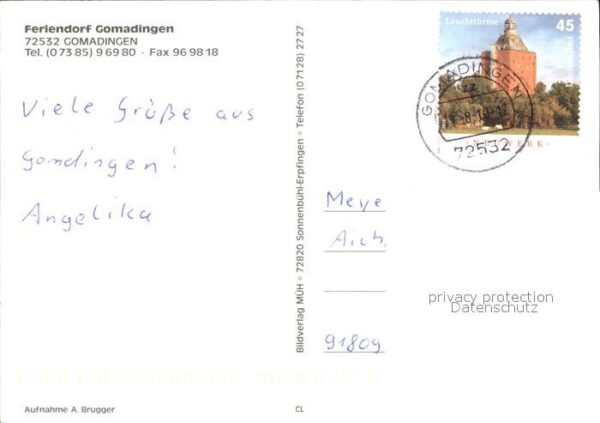 Feriendorf Gomadingen
72532 GOMADINGEN
Tel. (0 73 85) 9 69 80 · Fax 96 98 18
Viele Grüße aus
Gomdingen!
Angelika
Aufnahme A. Brugger
CL
Bildverlag MÜH ◦ 72820 Sonnenbühl-Erpfingen ◦ Telefon (0 71 28) 27 27
Leuchttürme
45
NEUWERK
GOMADINGEN
72532
Meye
Aich
91809
privacy protection
Datenschutz